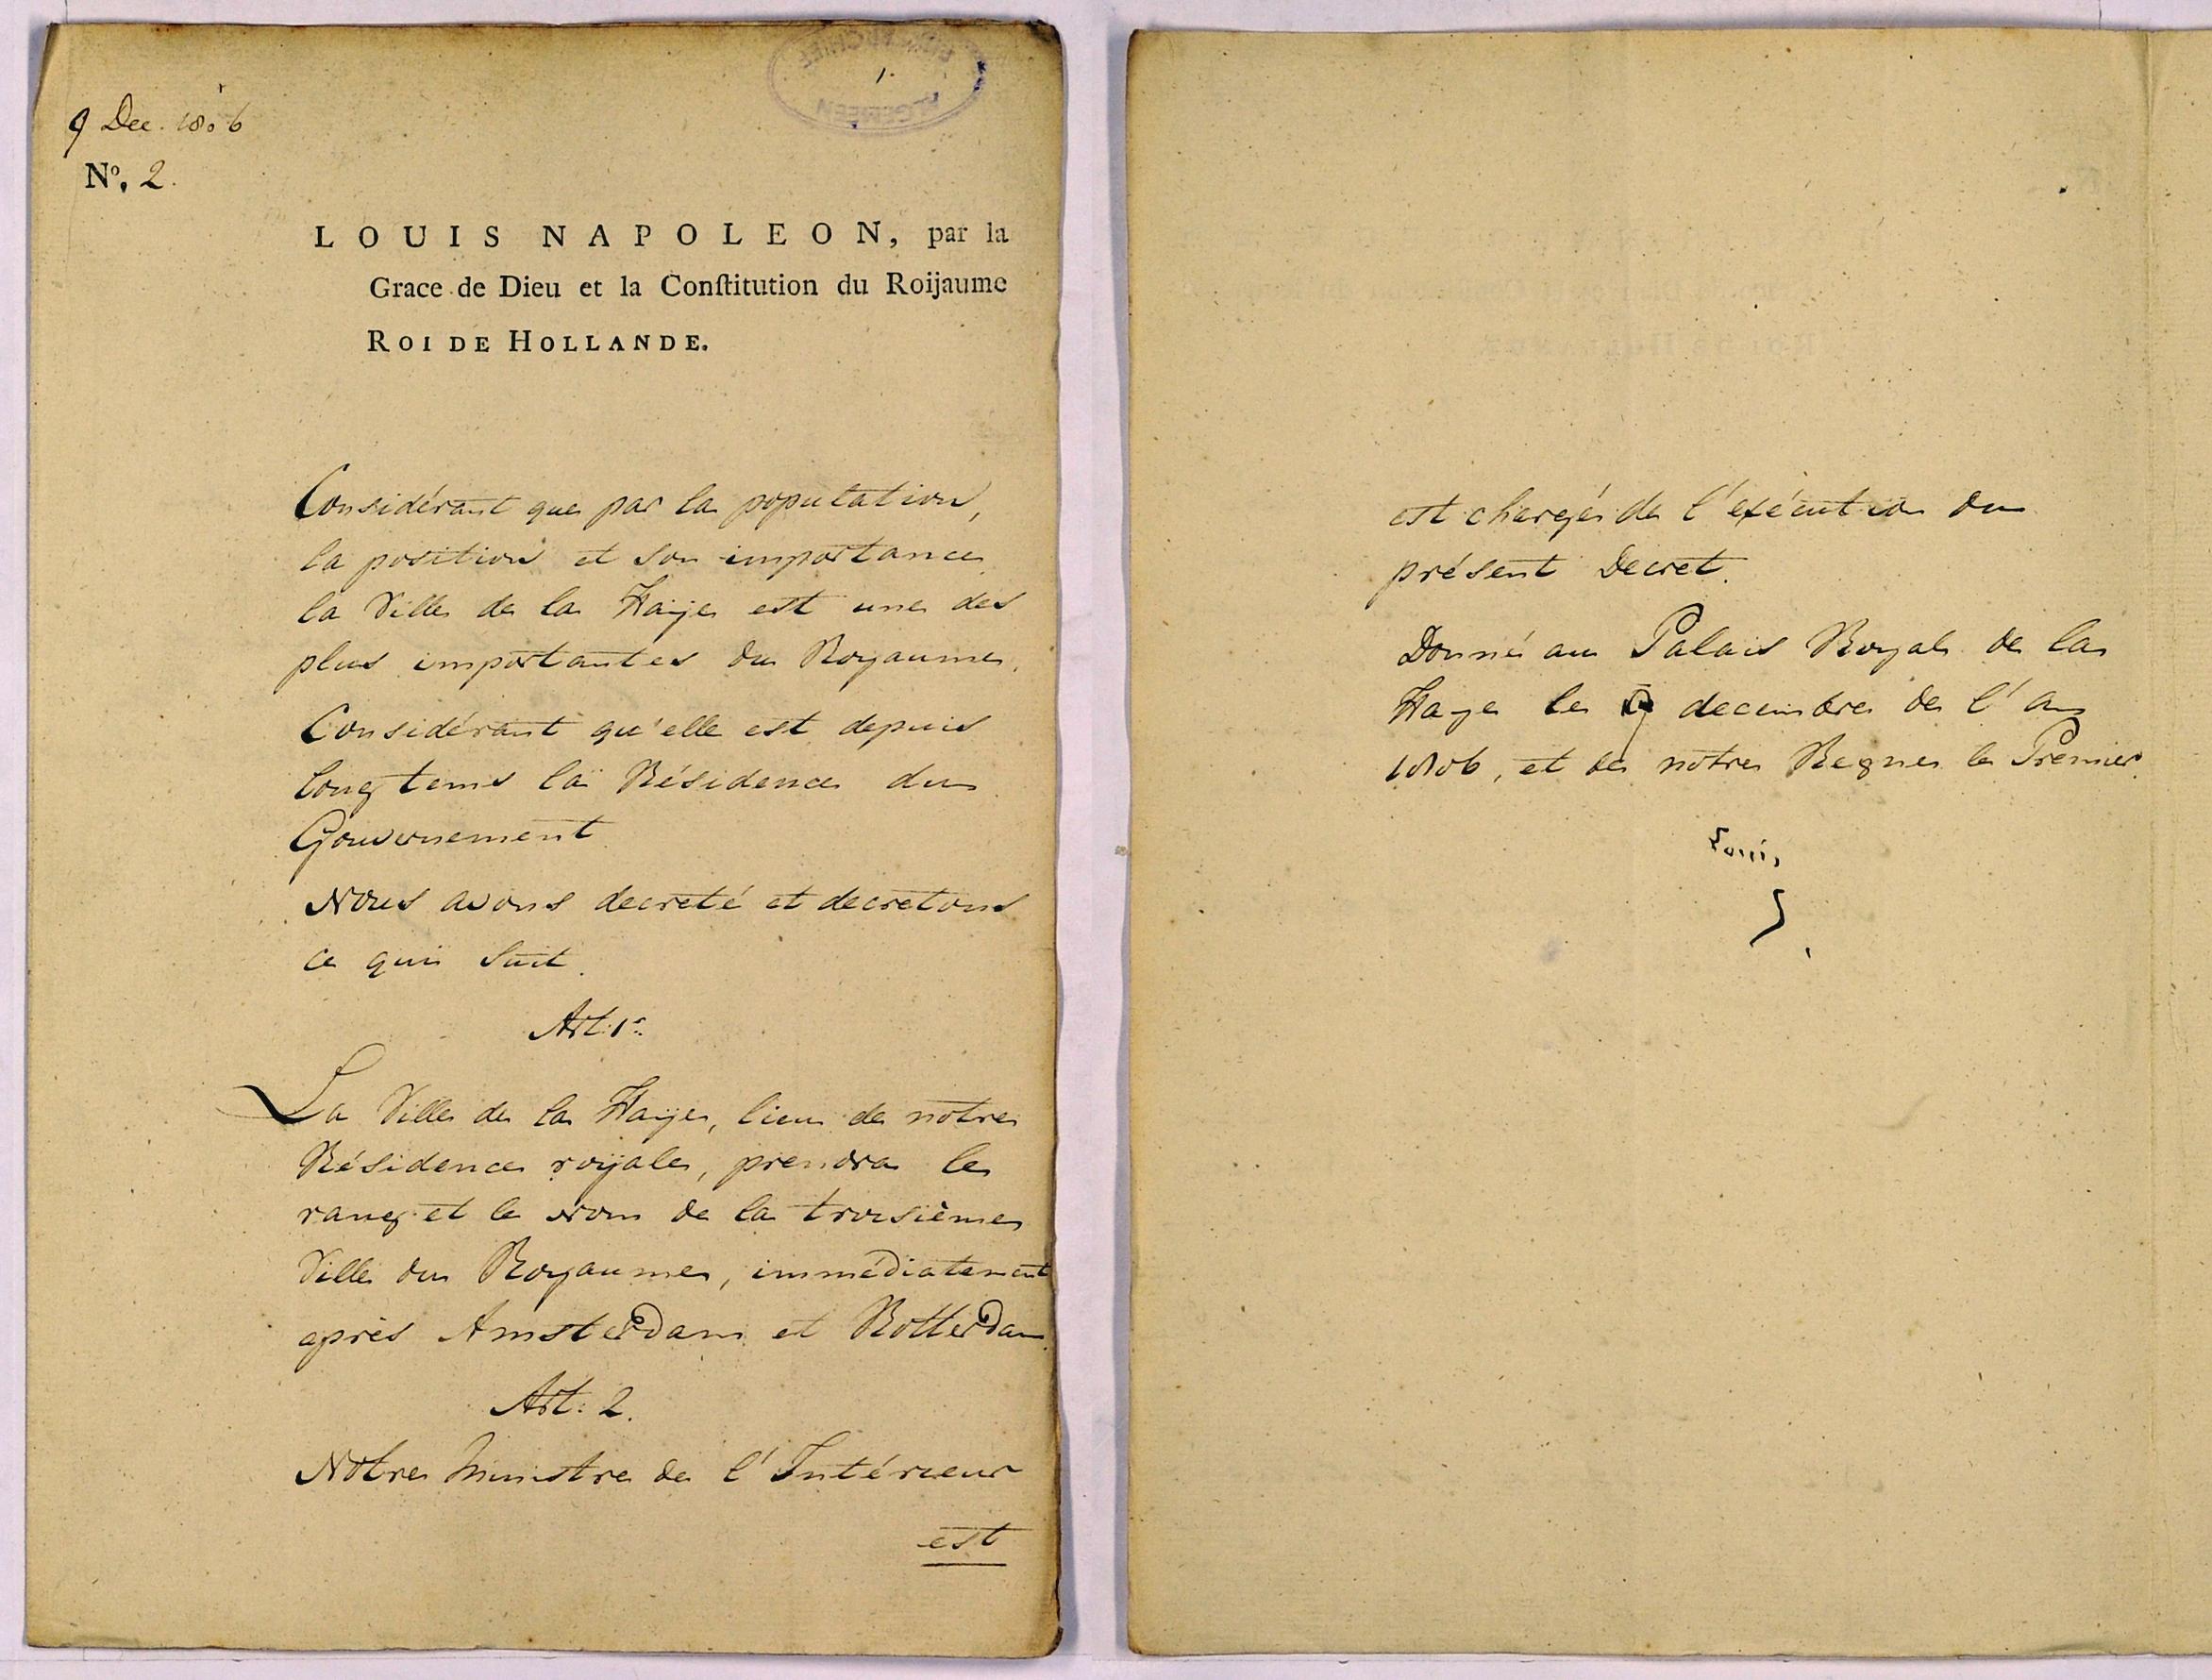 9 Dec. 1806
Nº. 2.
1.
ALGEMEEN
LOUIS NAPOLEON, par la
Grace de Dieu et la Conſtitution du Roijaume
ROI DE HOLLANDE.
Considérant que par la population,
la position et son importance
la Ville de la Haije est une des
plus importantes du Royaume.
Considérant qu'elle est depuis
longtems la Résidence du
Gouvernement
Nous avons decreté et decretons
ce qui suit.
Art: 1r.
La Ville de la Haije, lieu de notre
Résidence roijale, prendra le
rang et le nom de la troisième
Ville du Royaume, immédiatement
après Amsterdam et Rotterdam.
Art: 2.
Notre Ministre de l'Intérieur
est
est chargé de l'exécution du
présent Decret.
Donné au Palais Royal de la
Haye le 9 decembre de l'an
1806, et de notre Regne le Premier.
Louis